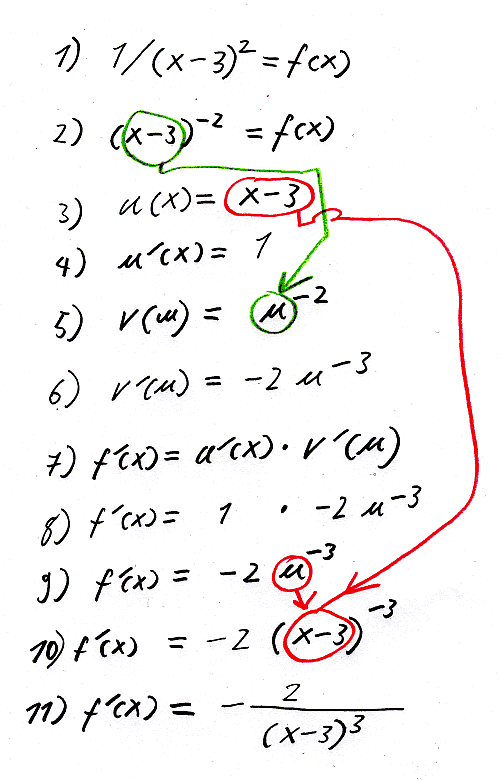 1) 1/(x-3)² = f(x)
2) (x-3)⁻² = f(x)
3) u(x) = x-3
4) u'(x) = 1
5) v(u) = u⁻²
6) v'(u) = -2 u⁻³
7) f'(x) = u'(x) · v'(u)
8) f'(x) = 1 · -2 u⁻³
9) f'(x) = -2 u⁻³
10) f'(x) = -2 (x-3)⁻³
11) f'(x) = - 2/(x-3)³